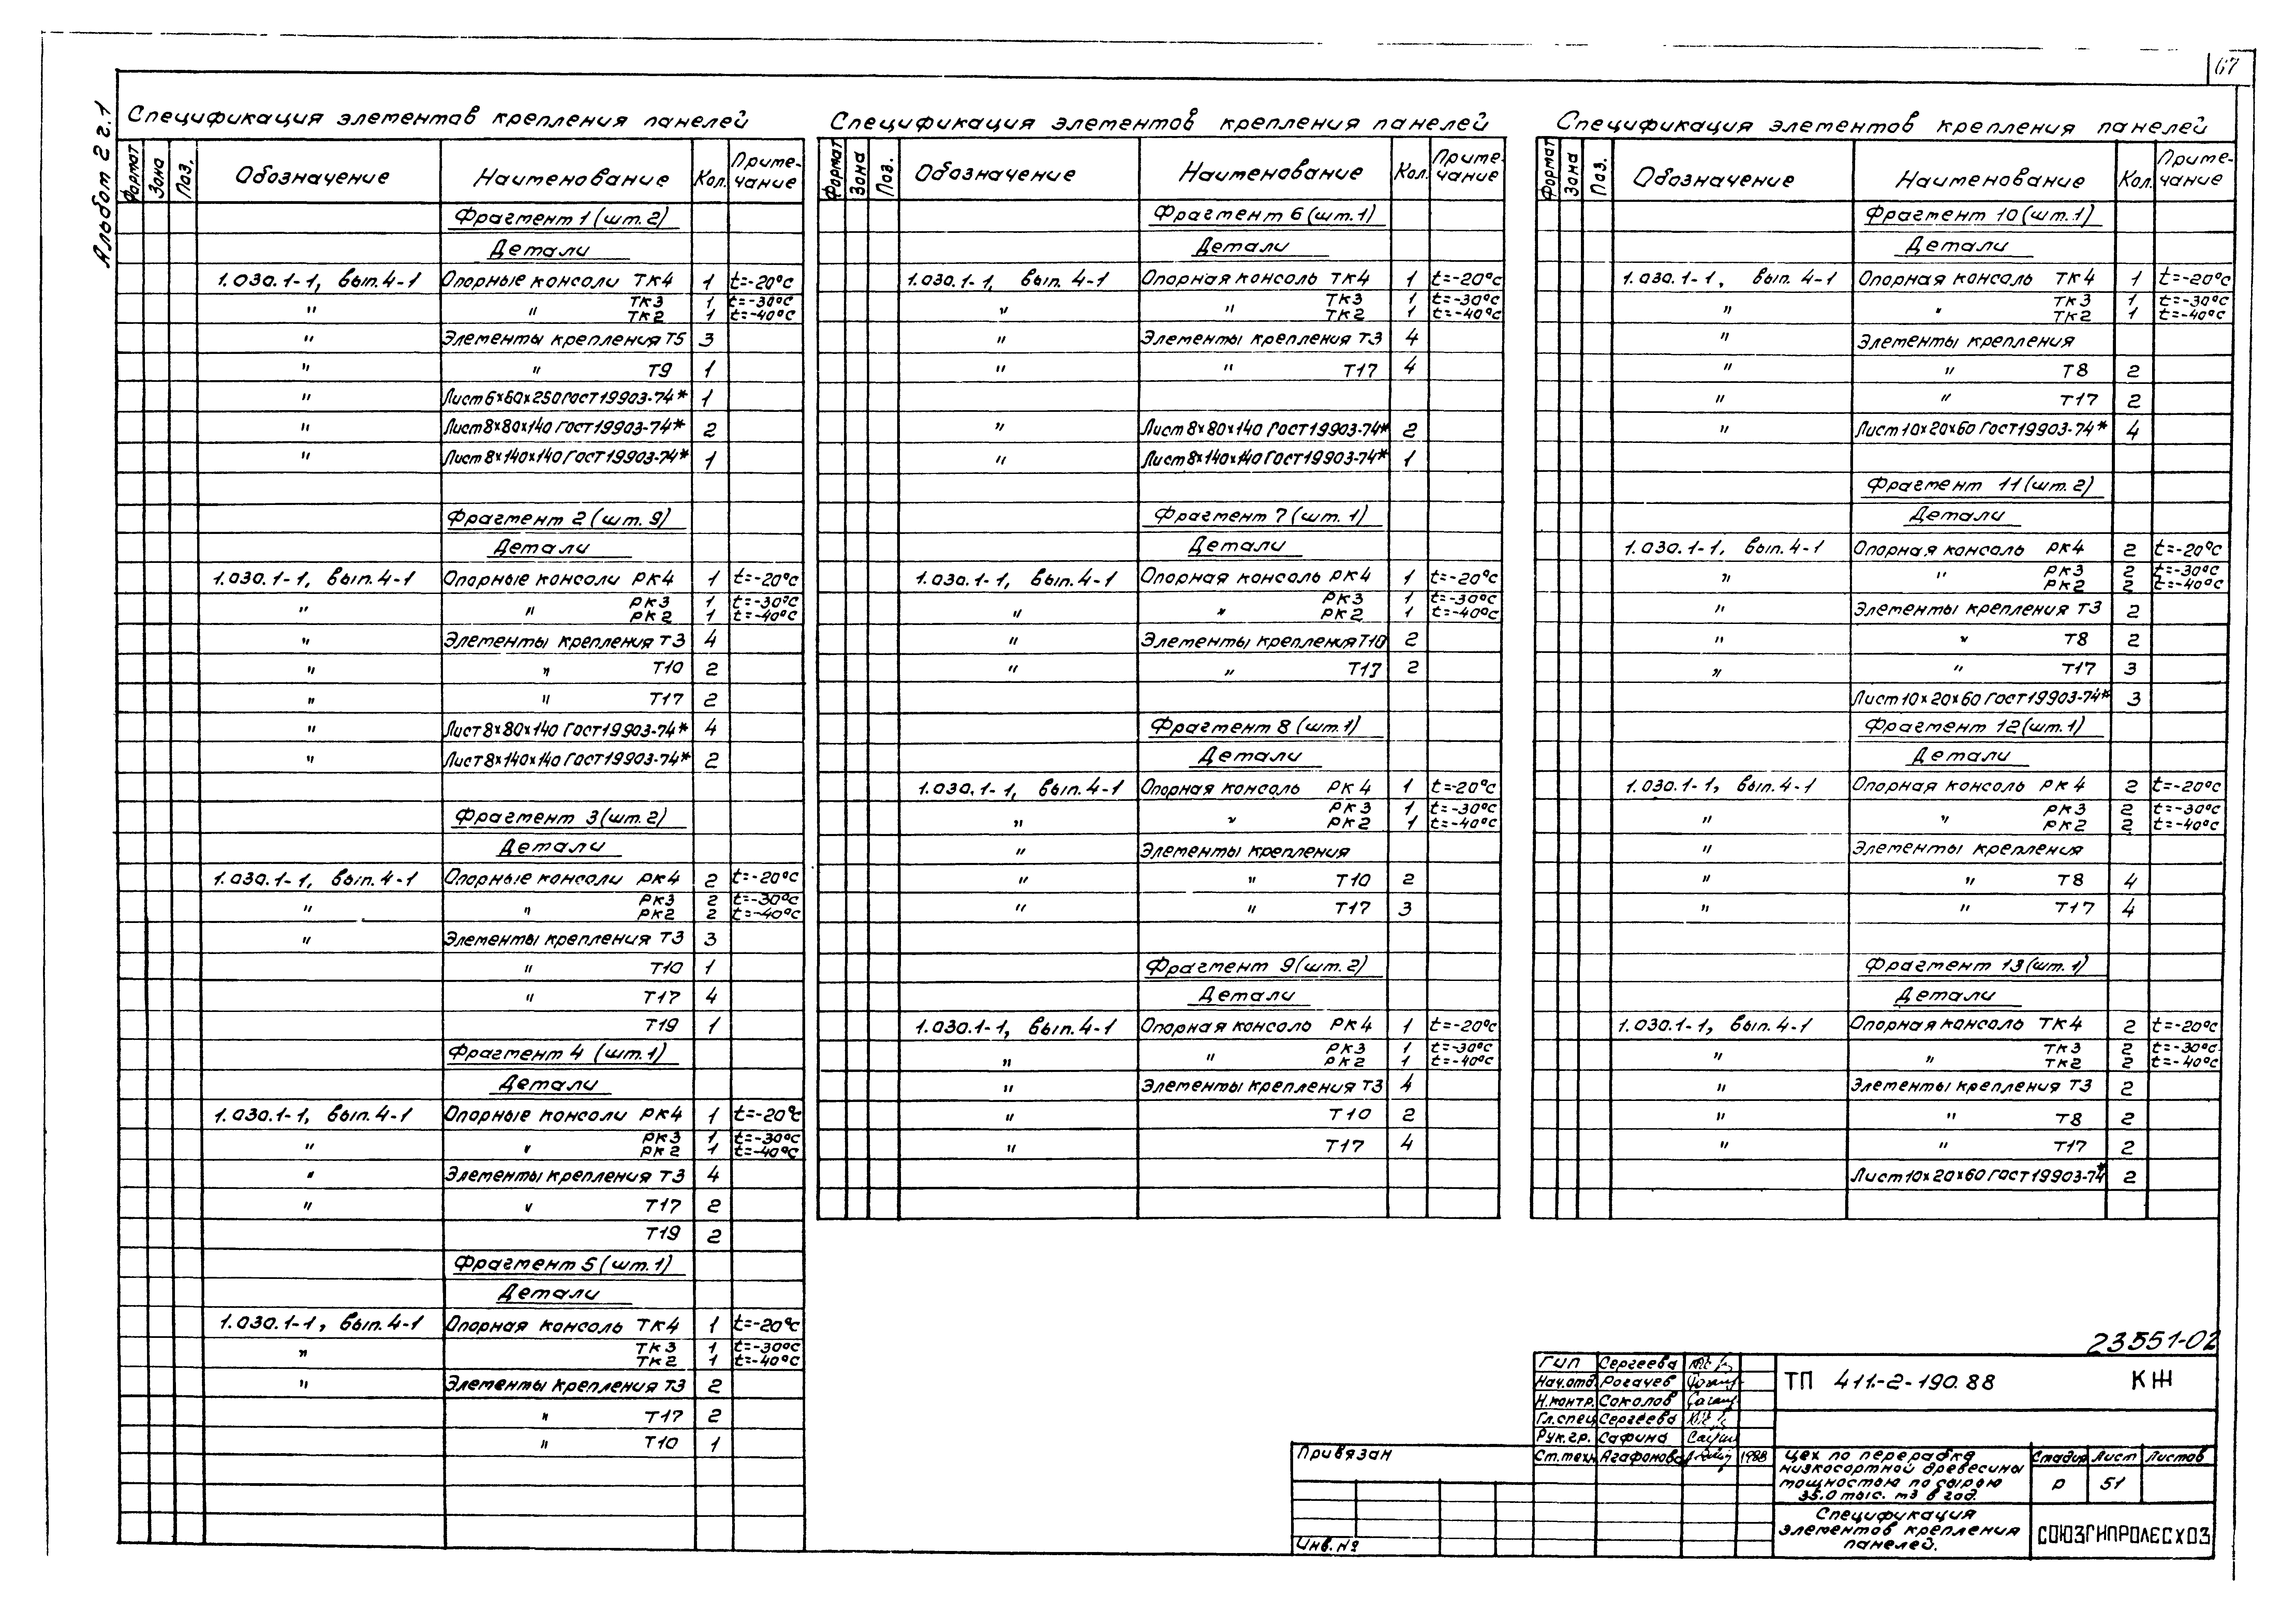 67
Альбом 2 2.1
Спецификация элементов крепления панелей
Формат Зона Поз. Обозначение Наименование Кол. Приме-
чание
Фрагмент 1 (шт.2)
Детали
1.030.1-1, вып.4-1 Опорные консоли ТК4 1 t=-20°С
" " ТК3 1 t=-30°С
ТК2 1 t=-40°С
" Элементы крепления Т5 3
" " Т9 1
" Лист 6×60×250 ГОСТ 19903-74* 1
" Лист 8×80×140 ГОСТ 19903-74* 2
" Лист 8×140×140 ГОСТ 19903-74* 1
Фрагмент 2 (шт.9)
Детали
1.030.1-1, вып.4-1 Опорные консоли РК4 1 t=-20°С
" " РК3 1 t=-30°С
РК2 1 t=-40°С
" Элементы крепления Т3 4
" " Т10 2
" " Т17 2
" Лист 8×80×140 ГОСТ 19903-74* 4
" Лист 8×140×140 ГОСТ 19903-74* 2
Фрагмент 3 (шт.2)
Детали
1.030.1-1, вып.4-1 Опорные консоли РК4 2 t=-20°С
" " РК3 2 t=-30°С
РК2 2 t=-40°С
" Элементы крепления Т3 3
" Т10 1
" Т17 4
Т19 1
Фрагмент 4 (шт.1)
Детали
1.030.1-1, вып.4-1 Опорные консоли РК4 1 t=-20°С
" " РК3 1 t=-30°С
РК2 1 t=-40°С
" Элементы крепления Т3 4
" " Т17 2
Т19 2
Фрагмент 5 (шт.1)
Детали
1.030.1-1, вып.4-1 Опорная консоль ТК4 1 t=-20°С
" ТК3 1 t=-30°С
ТК2 1 t=-40°С
" Элементы крепления Т3 2
" Т17 2
" Т10 1
Спецификация элементов крепления панелей
Формат Зона Поз. Обозначение Наименование Кол. Приме-
чание
Фрагмент 6 (шт.1)
Детали
1.030.1-1, вып.4-1 Опорная консоль ТК4 1 t=-20°С
" " ТК3 1 t=-30°С
ТК2 1 t=-40°С
" Элементы крепления Т3 4
" " Т17 4
" Лист 8×80×140 ГОСТ 19903-74* 2
" Лист 8×140×140 ГОСТ 19903-74* 1
Фрагмент 7 (шт.1)
Детали
1.030.1-1, вып.4-1 Опорная консоль РК4 1 t=-20°С
" " РК3 1 t=-30°С
РК2 1 t=-40°С
" Элементы крепления Т10 2
" " Т17 2
Фрагмент 8 (шт.1)
Детали
1.030.1-1, вып.4-1 Опорная консоль РК4 1 t=-20°С
" " РК3 1 t=-30°С
РК2 1 t=-40°С
" Элементы крепления
" " Т10 2
" " Т17 3
Фрагмент 9 (шт.2)
Детали
1.030.1-1, вып.4-1 Опорная консоль РК4 1 t=-20°С
" " РК3 1 t=-30°С
РК2 1 t=-40°С
" Элементы крепления Т3 4
" Т10 2
" Т17 4
Спецификация элементов крепления панелей
Формат Зона Поз. Обозначение Наименование Кол. Приме-
чание
Фрагмент 10 (шт.1)
Детали
1.030.1-1, вып.4-1 Опорная консоль ТК4 1 t=-20°С
" " ТК3 1 t=-30°С
ТК2 1 t=-40°С
" Элементы крепления
" " Т8 2
" " Т17 2
" Лист 10×20×60 ГОСТ 19903-74* 4
Фрагмент 11 (шт.2)
Детали
1.030.1-1, вып.4-1 Опорная консоль РК4 2 t=-20°С
" " РК3 2 t=-30°С
РК2 2 t=-40°С
" Элементы крепления Т3 2
" " Т8 2
" " Т17 3
Лист 10×20×60 ГОСТ 19903-74* 3
Фрагмент 12 (шт.1)
Детали
1.030.1-1, вып.4-1 Опорная консоль РК4 2 t=-20°С
" " РК3 2 t=-30°С
РК2 2 t=-40°С
" Элементы крепления
" " Т8 4
" " Т17 4
Фрагмент 13 (шт.1)
Детали
1.030.1-1, вып.4-1 Опорная консоль ТК4 2 t=-20°С
" " ТК3 2 t=-30°С
ТК2 2 t=-40°С
" Элементы крепления Т3 2
" " Т8 2
" " Т17 2
Лист 10×20×60 ГОСТ 19903-74* 2
23551-02
ГИП Сергеева
Нач.отд. Рогачев
Н.контр. Соколов
Гл.спец. Сергеева
Рук.гр. Сафина
Ст.техн. Агафонова 1988
ТП 411-2-190.88 КЖ
Цех по перерабке
низкосортной древесины
мощностью по сырью
35.0 тыс. м3 в год.
Стадия Лист Листов
Р 51
Спецификация
элементов крепления
панелей.
СОЮЗГИПРОЛЕСХОЗ
Привязан
Инв.№